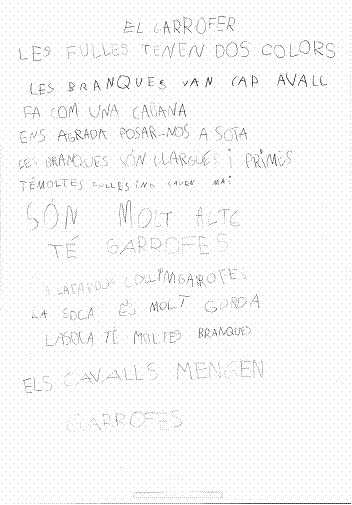 EL GARROFER
LES FULLES TENEN DOS COLORS
LES BRANQUES VAN CAP AVALL
FA COM UNA CABANA
ENS AGRADA POSAR-NOS A SOTA
LES BRANQUES SÓN LLARGUES i PRiMES
TÉMOLTES FULLES i NO CAUEN MAi
SÓN MOLT ALTS
TÉ GARROFES
COLLiMGAROFES
LA SOCA ÉS MOLT GORDA
LASOCA TÉ MOLTES BRANQUES
ELS CAVALLS MENGEN
GARROFES